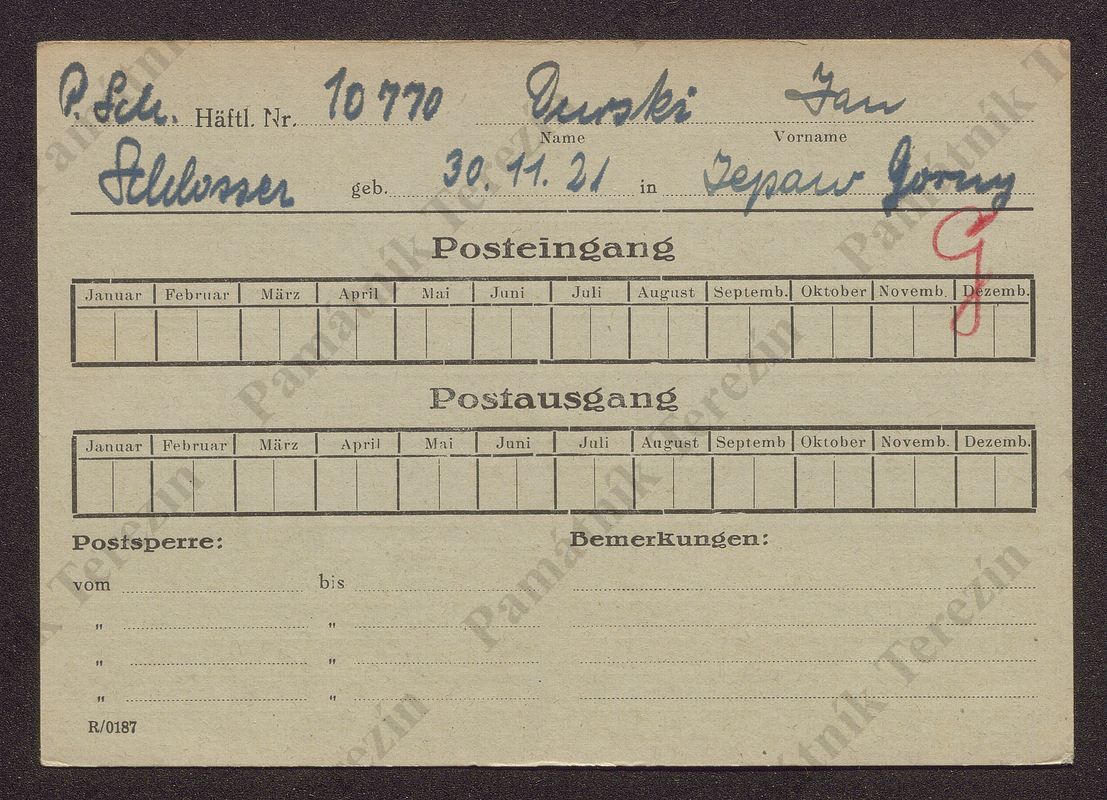 P. Sch. Häftl. Nr. 10 770 Durski Jan
Name Vorname
Schlosser geb. 30. 11. 21 in Gorny
Posteingang
Januar Februar März April Mai Juni Juli August Septemb. Oktober Novemb. Dezemb.
Postausgang
Januar Februar März April Mai Juni Juli August Septemb Oktober Novemb. Dezemb.
Postsperre: Bemerkungen:
vom bis
" "
" "
" "
R/0187
Památník Terezín